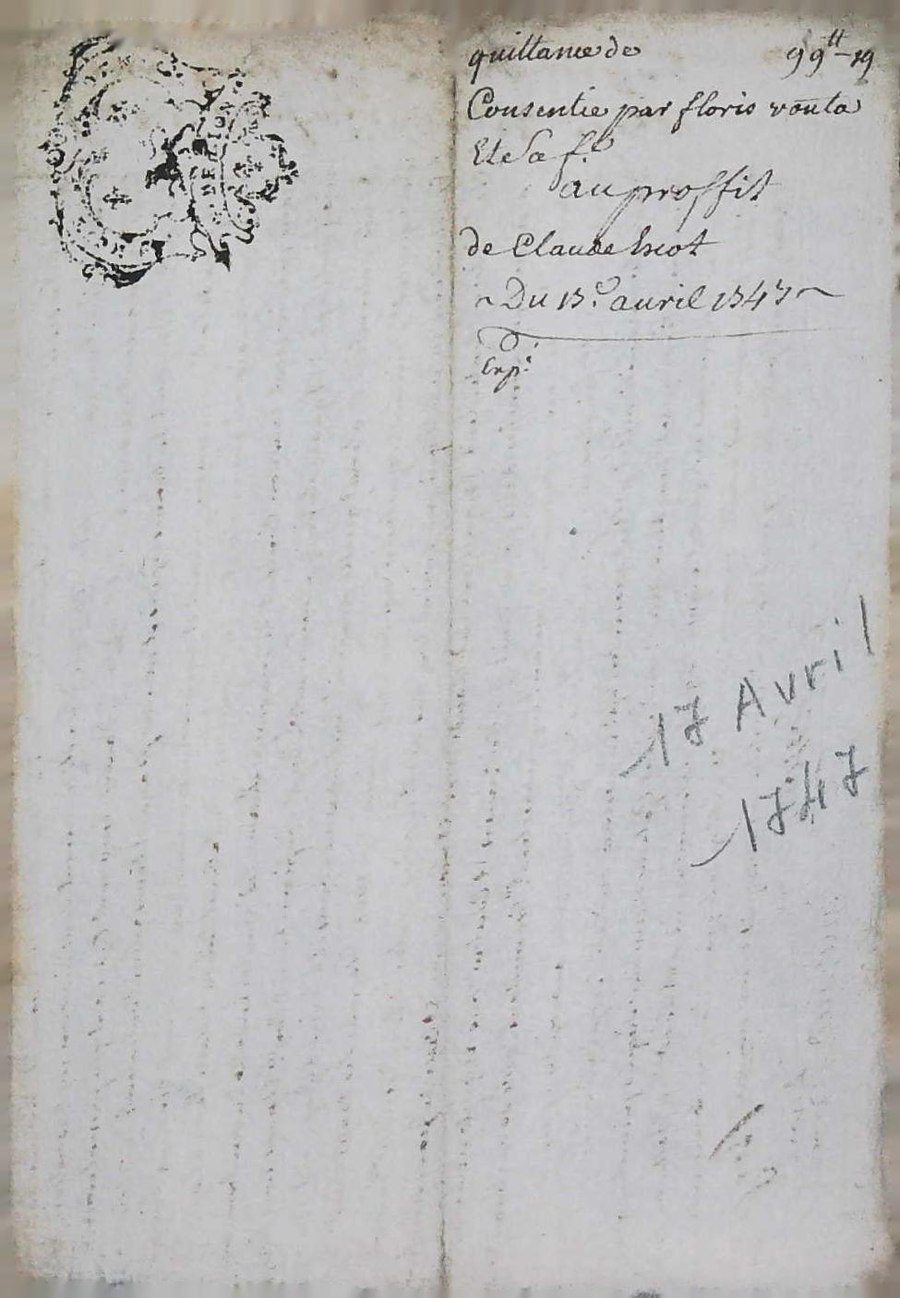 quittance de 99 tt-19
Consentie par floris
Et Sa f.e
au proffit
de Claude
~ Du 17.e auril 1747 ~
Exp.e
17 Avril
1747